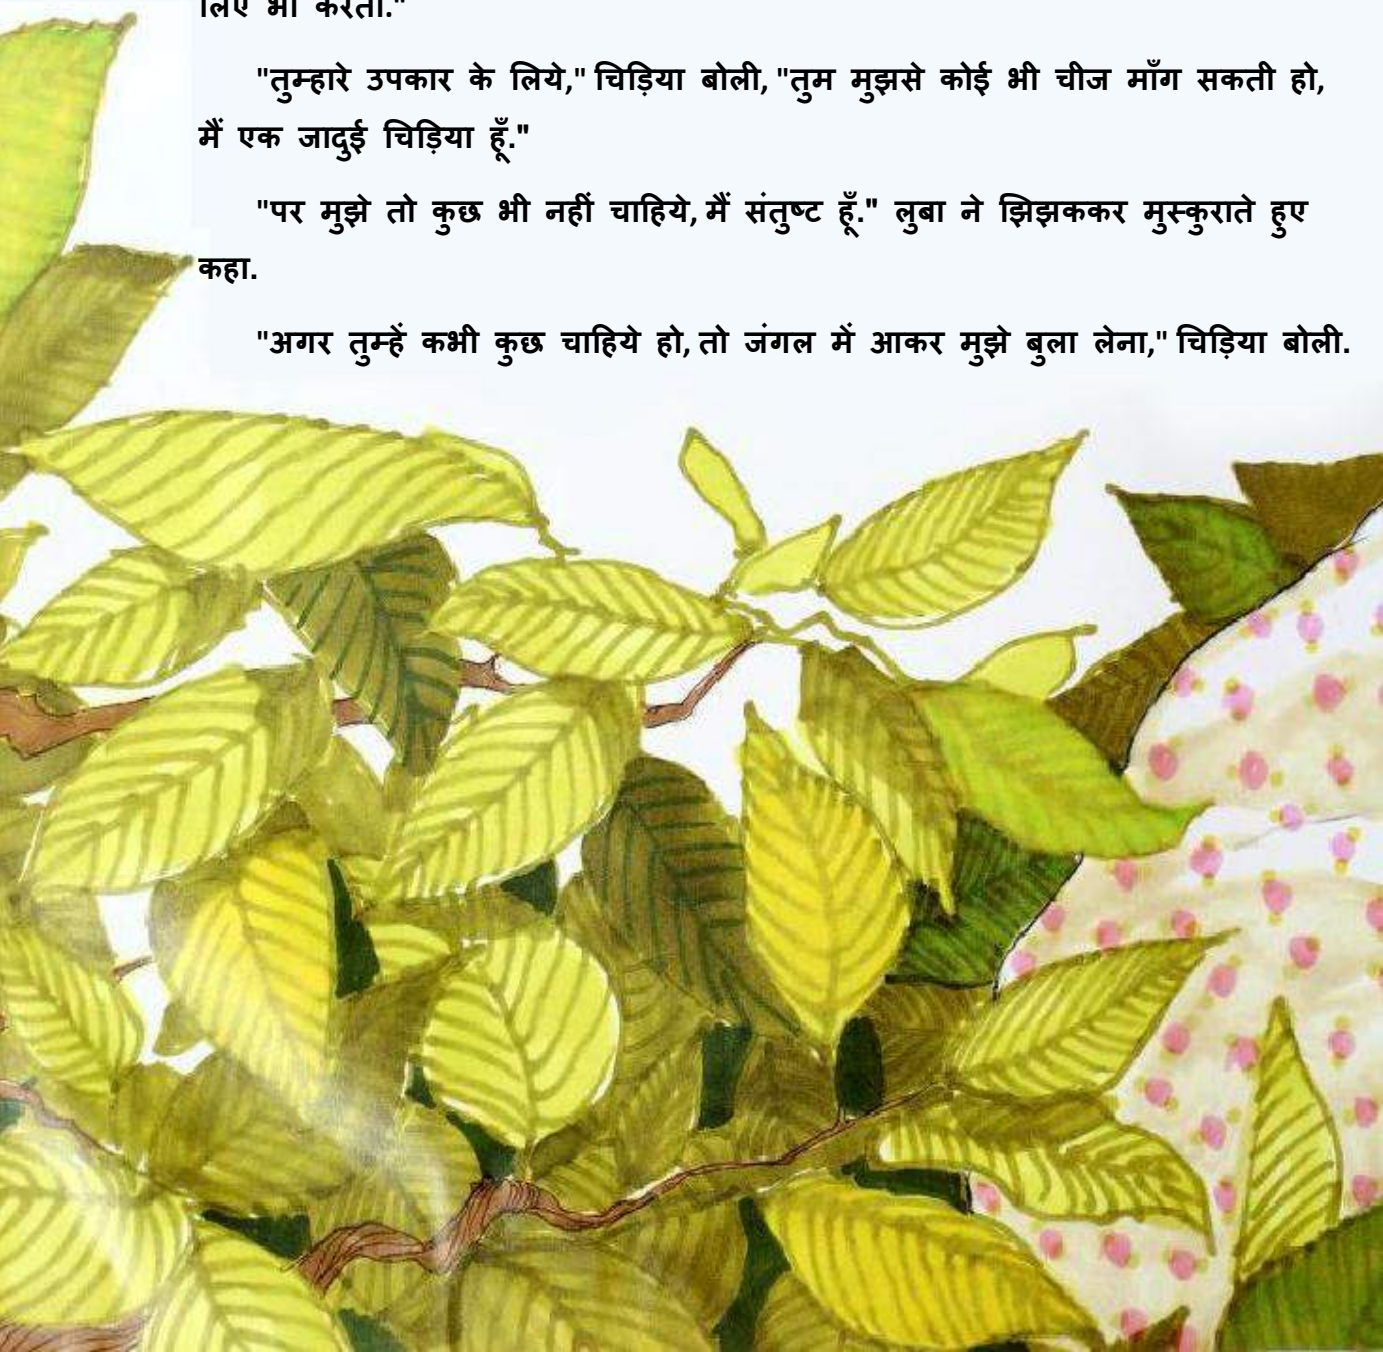 लिए भी करती."
"तुम्हारे उपकार के लिये," चिड़िया बोली, "तुम मुझसे कोई भी चीज माँग सकती हो,
मैं एक जादुई चिड़िया हूँ."
"पर मुझे तो कुछ भी नहीं चाहिये, मैं संतुष्ट हूँ." लुबा ने झिझककर मुस्कुराते हुए
कहा.
"अगर तुम्हें कभी कुछ चाहिये हो, तो जंगल में आकर मुझे बुला लेना," चिड़िया बोली.